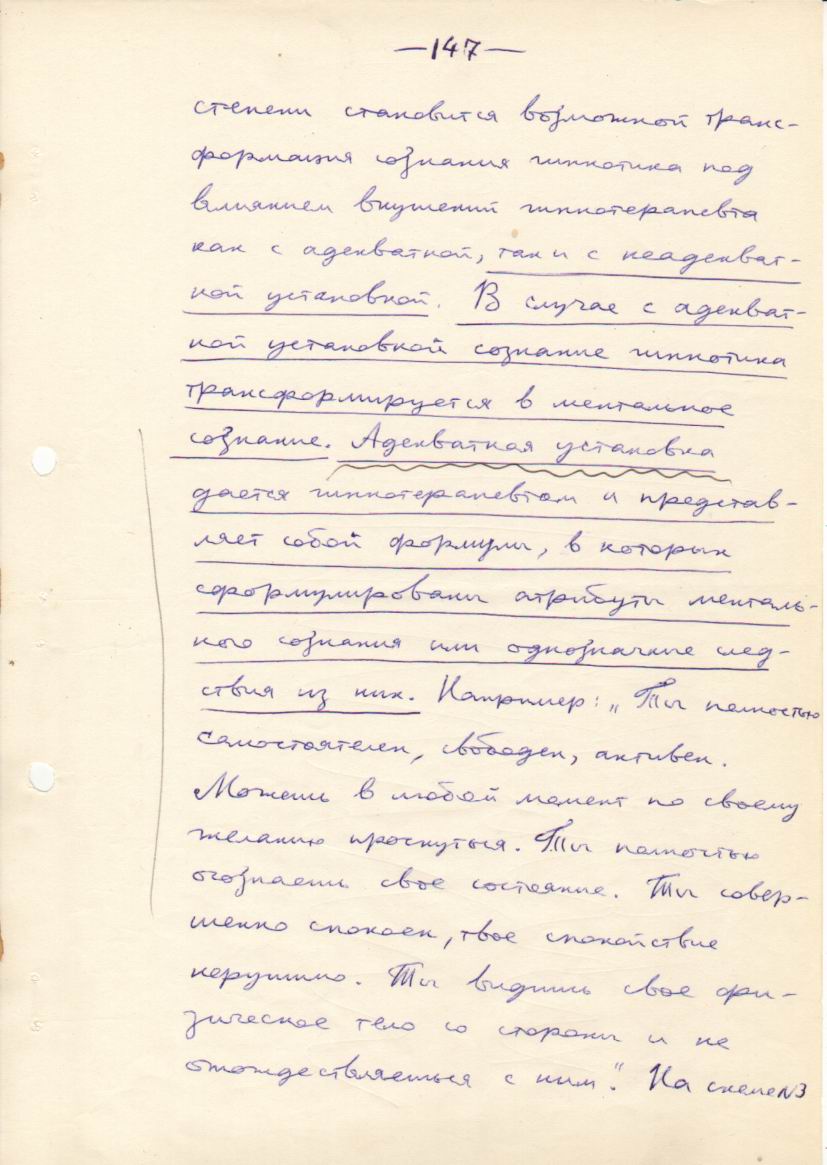 —147—
степени становится возможной транс-
формация сознания гипнотика под
влиянием внушений гипнотерапевта
как с адекватной, так и с неадекват-
ной установкой. В случае с адекват-
ной установкой сознание гипнотика
трансформируется в ментальное
сознание. Адекватная установка
дается гипнотерапевтом и представ-
ляет собой формулы, в которых
сформулированы атрибуты менталь-
ного сознания или однозначные след-
ствия из них. Например: „Ты полностью
самостоятелен, свободен, активен.
Можешь в любой момент по своему
желанию проснуться. Ты полностью
осознаешь свое состояние. Ты совер-
шенно спокоен, твое спокойствие
нерушимо. Ты видишь свое фи-
зическое тело со стороны и не
отождествляешься с ним“. На схеме №3